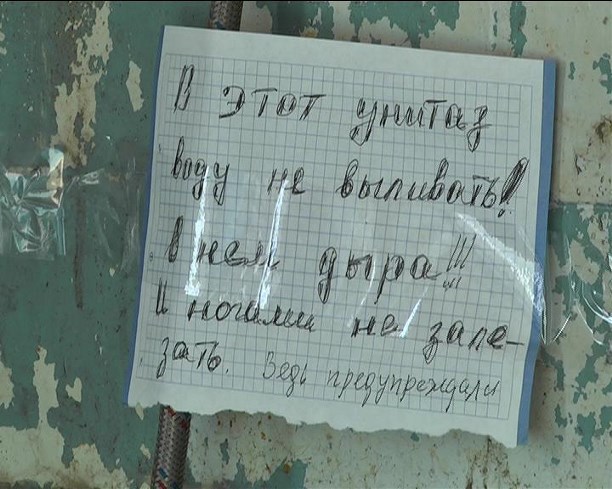 В этот унитаз
воду не выливать!
В нем дыра!!!
И ногами не зале-
зать. Ведь предупреждали